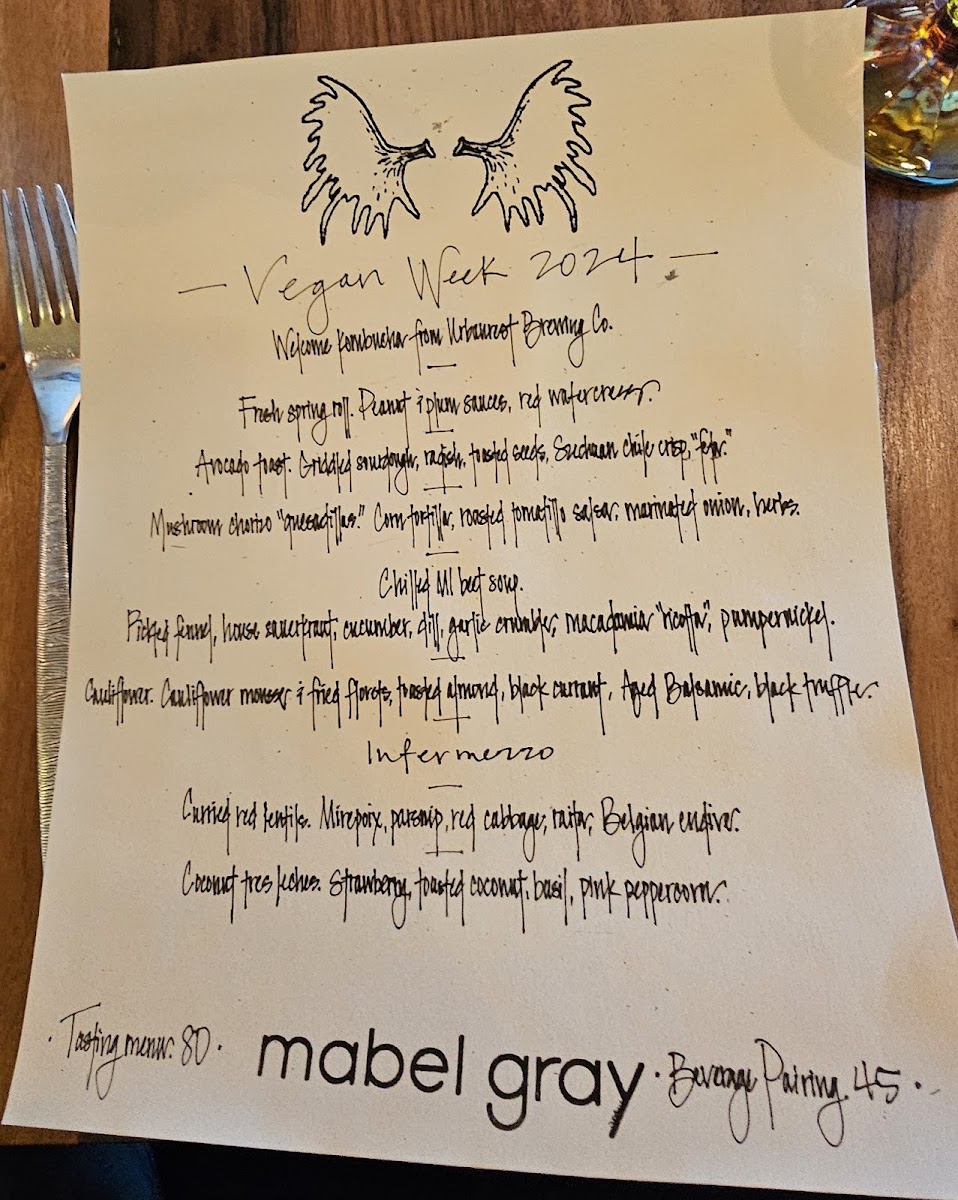 — Vegan Week 2024 —
Welcome Kombucha from Urbanrest Brewing Co.
Fresh spring roll. Peanut & plum sauces, red watercress.
Avocado toast. Griddled sourdough, radish, toasted seeds, Szechuan chile crisp, "feta."
Mushroom chorizo "quesadillas." Corn tortilla, roasted tomatillo salsa, marinated onion, herbs.
Chilled MI beet soup.
Pickled fennel, house sauerkraut, cucumber, dill, garlic crumbles, macadamia "ricotta", pumpernickel.
Cauliflower. Cauliflower mousse & fried florets, toasted almond, black currant, Aged Balsamic, black truffle.
Intermezzo
Curried red lentils. Mirepoix, parsnip, red cabbage, raita, Belgian endive.
Coconut tres leches. Strawberry, toasted coconut, basil, pink peppercorn.
· Tasting menu. 80 · mabel gray · Beverage Pairing. 45 ·